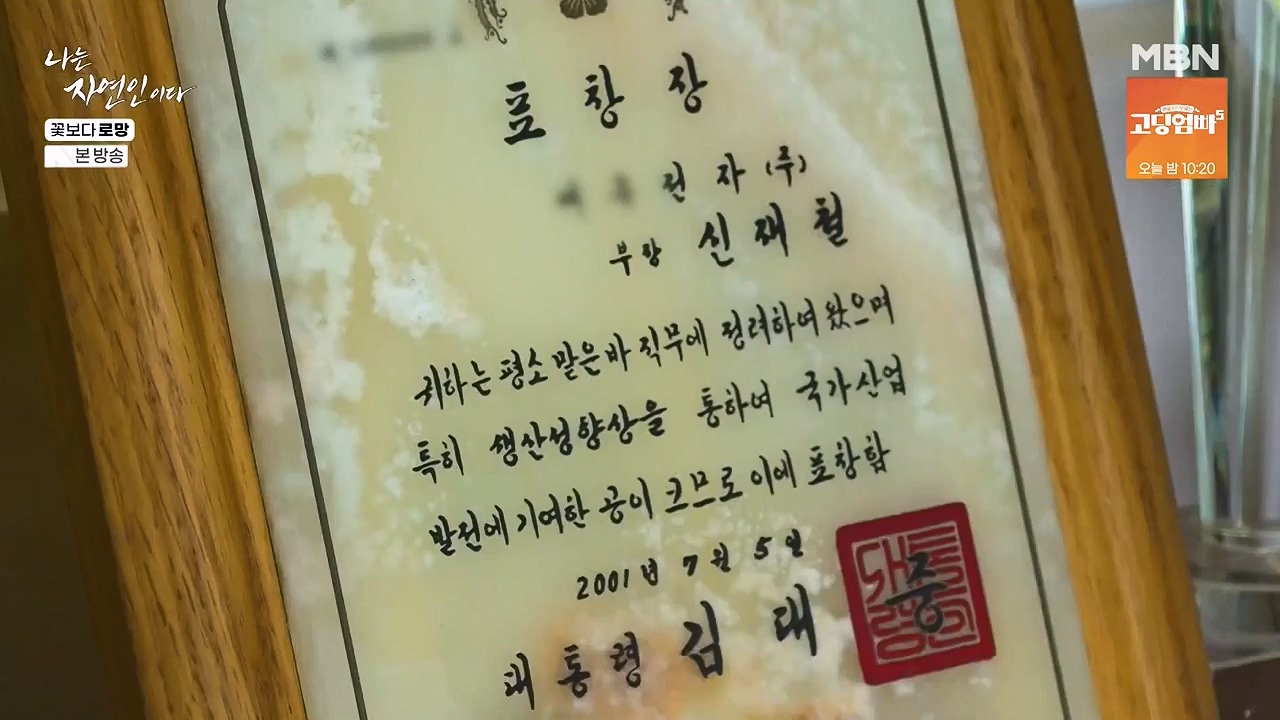 나는
자연인이다
꽃보다 로망
본 방송
MBN
고딩엄빠5
오늘 밤 10:20
표창장
전자(주)
부장 신재철
귀하는 평소 맡은바 직무에 정려하여 왔으며
특히 생산성향상을 통하여 국가산업
발전에 기여한 공이 크므로 이에 표창함
2001년 7월 5일
대통령 김대중